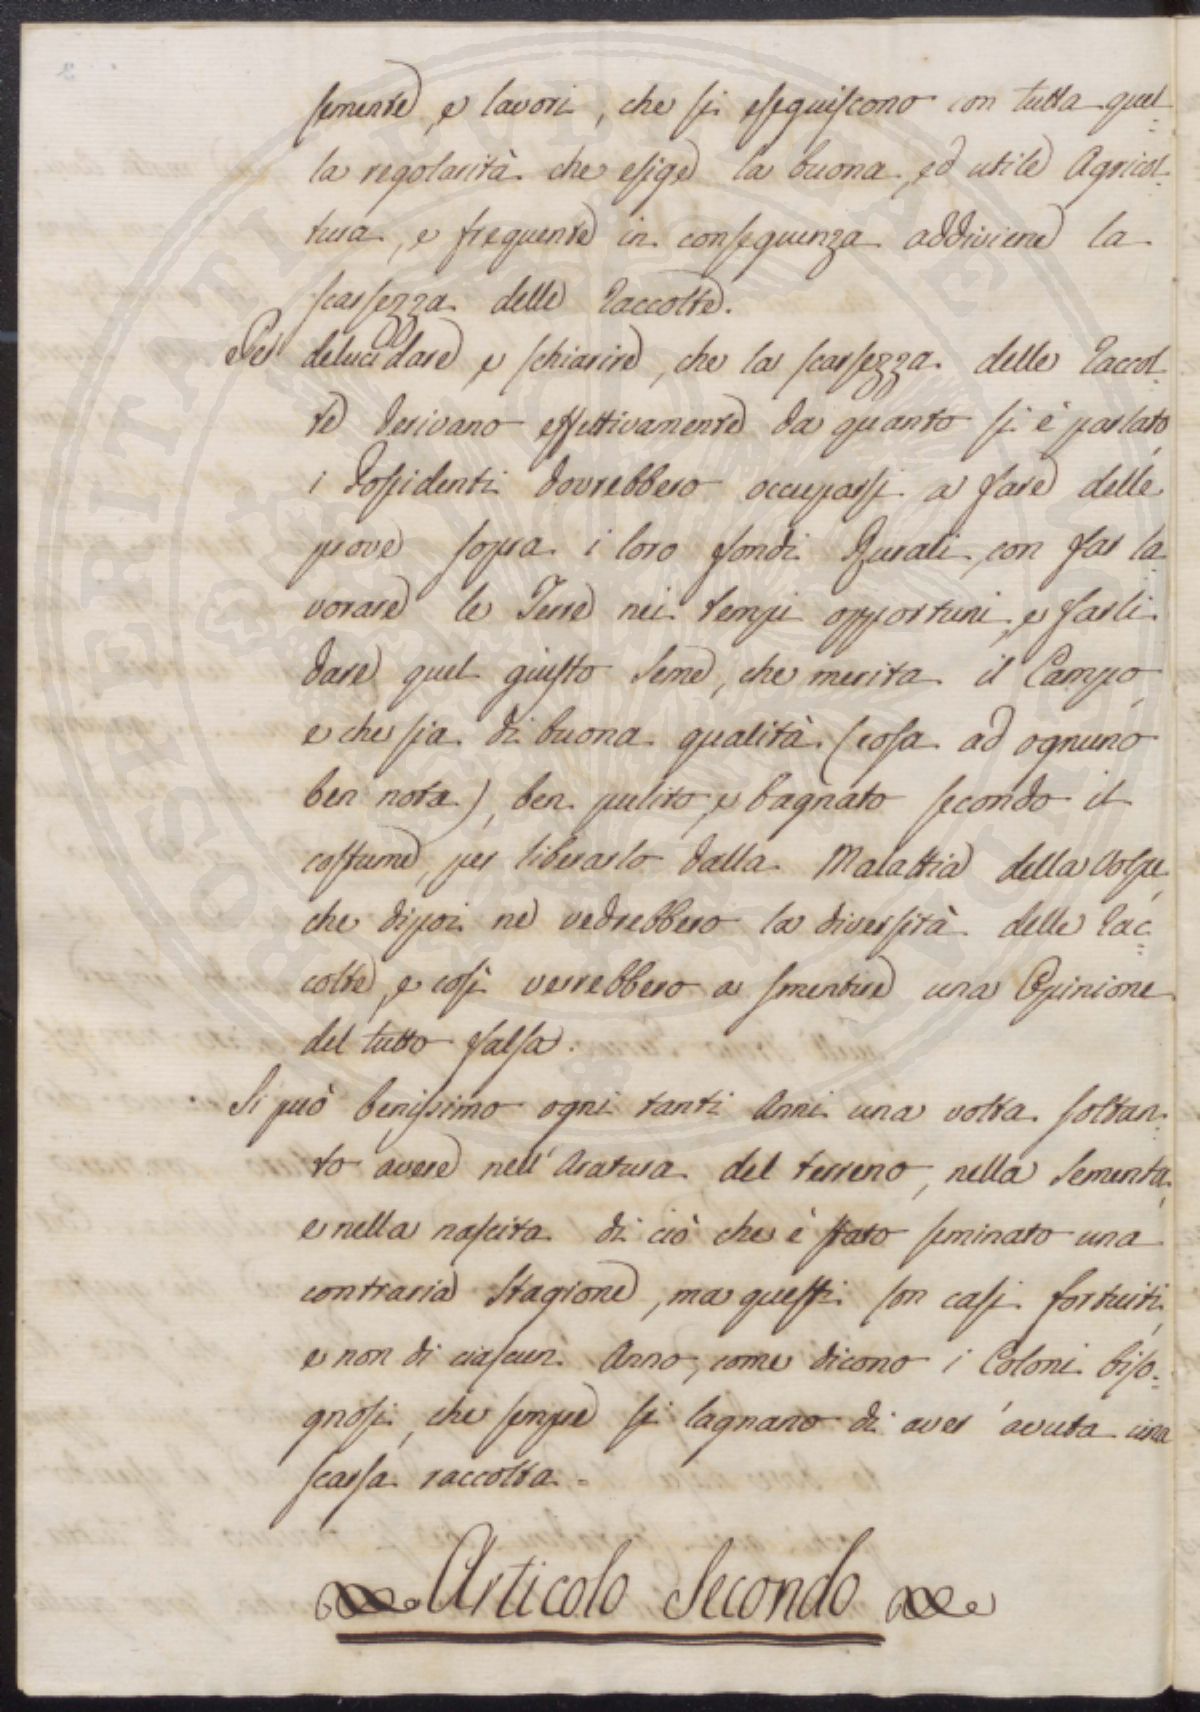 semente, e lavori, che si eseguiscono con tutta quel=
la regolarità che esige la buona, ed utile Agricol=
tura, e frequente in conseguenza addiviene la
scarsezza delle Raccolte.
Per delucidare, e schiarire, che la scarsezza delle Raccol=
te derivano effettivamente da quanto si è parlato,
i Possidenti dovrebbero occuparsi a fare delle
prove sopra i loro fondi Rurali, con far la=
vorare le Terre nei tempi opportuni, e farli
dare quel giusto Seme, che merita il Campo,
e che sia di buona qualità (cosa ad ognuno
ben nota), ben pulito, e bagnato secondo il
costume, per liberarlo dalla Malattia della Volpe,
che dipoi ne vedrebbero la diversità delle Rac=
colte, e così verrebbero a smentire una Opinione
del tutto falsa.
Si può benissimo ogni tanti Anni una volta soltan=
to avere nell'Aratura del terreno, nella Sementa,
e nella nascita di ciò che è stato seminato una
contraria Stagione, ma questi son casi fortuiti,
e non di ciascun Anno, come dicono i Coloni biso=
gnosi, che sempre si lagnano di aver avuta una
scarsa raccolta.=
Articolo Secondo
SOPRINTENDENZA